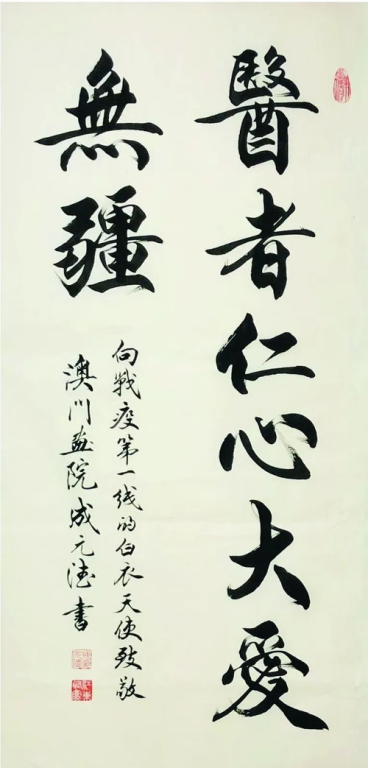 醫者仁心大愛
無疆
向戰疫第一线的白衣天使致敬
澳门畫院成元法書